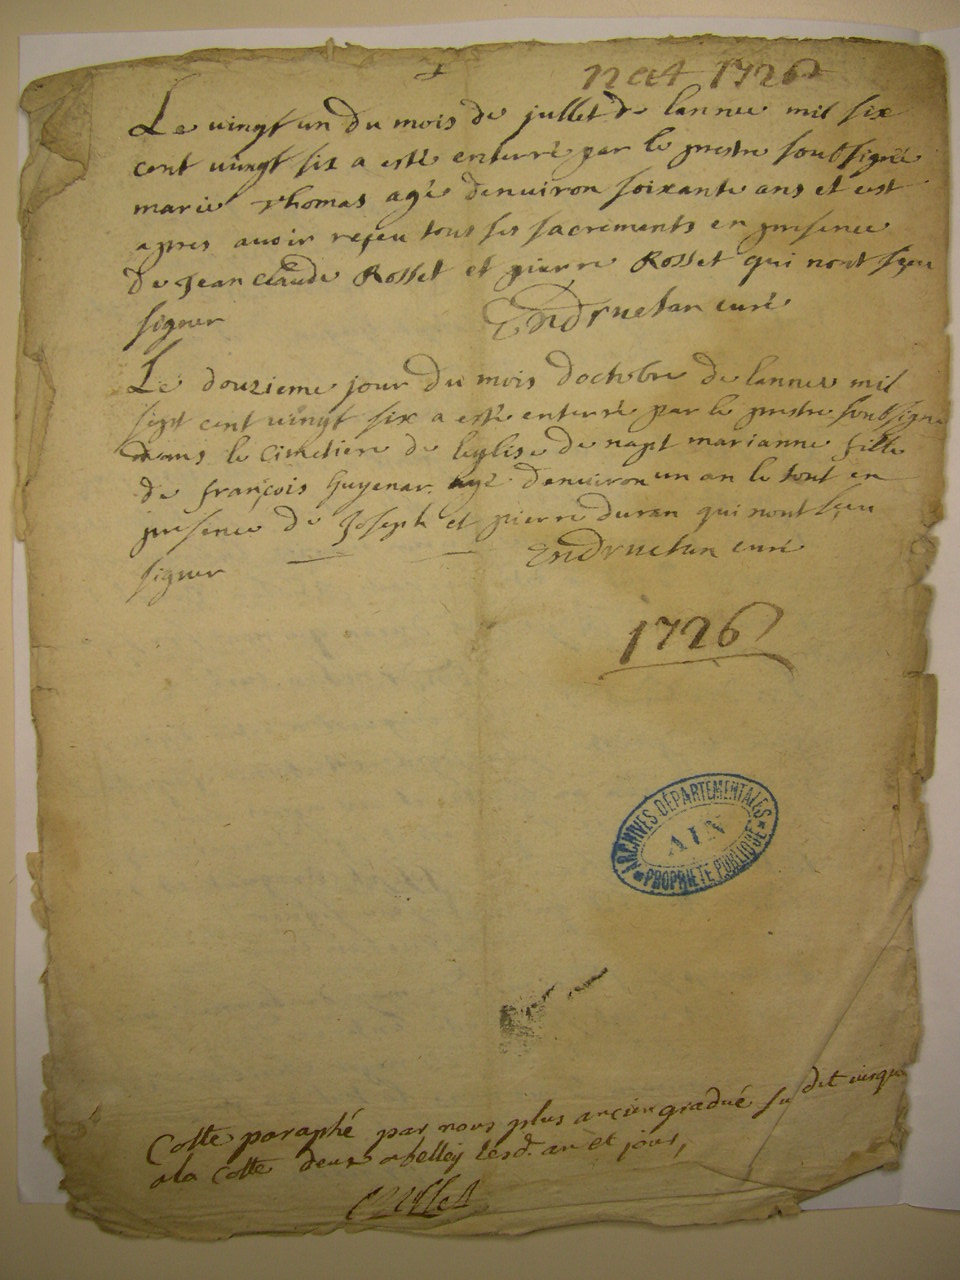 nat 1726
Le vingt un du mois de jullet de lannee mil six
cent vingt six a esté enterré par le prestre soubsigné
marie Thomas agé denuiron soixante ans et est
apres auoir reçeu tous ses sacrements en presence
de Jean claude Rosset et pierre Rosset qui nont sçeu
signer Endruetan curé
Le douzieme jour du mois doctobre de lannee mil
sept cent vingt six a esté enterré par le prestre soubsigné
dans le cimetiere de leglise de napt marianne fille
de françois Guyenar agé denuiron un an le tout en
presence de Joseph et pierre duran qui nont sçeu
signer Endruetan curé
1726
ARCHIVES DÉPARTEMENTALES
AIN
PROPRIÉTÉ PUBLIQUE
Cotte paraphé par nous plus ancien gradué su dit
a la Cotte deux a belley lesd. an et jour,